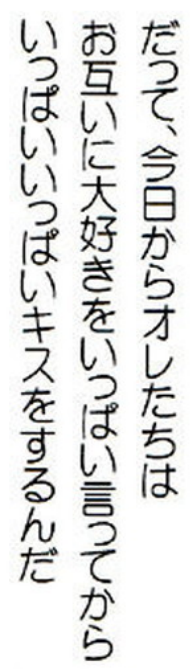 だって、今日からオレたちは
お互いに大好きをいっぱい言ってから
いっぱいいっぱいキスをするんだ